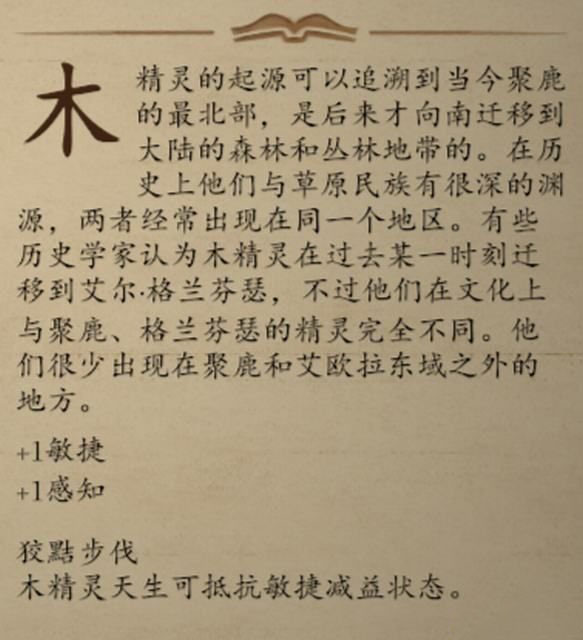 木
精灵的起源可以追溯到当今聚鹿
的最北部，是后来才向南迁移到
大陆的森林和丛林地带的。在历
史上他们与草原民族有很深的渊
源，两者经常出现在同一个地区。有些
历史学家认为木精灵在过去某一时刻迁
移到艾尔·格兰芬瑟，不过他们在文化上
与聚鹿、格兰芬瑟的精灵完全不同。他
们很少出现在聚鹿和艾欧拉东域之外的
地方。
+1敏捷
+1感知
狡點步伐
木精灵天生可抵抗敏捷减益状态。